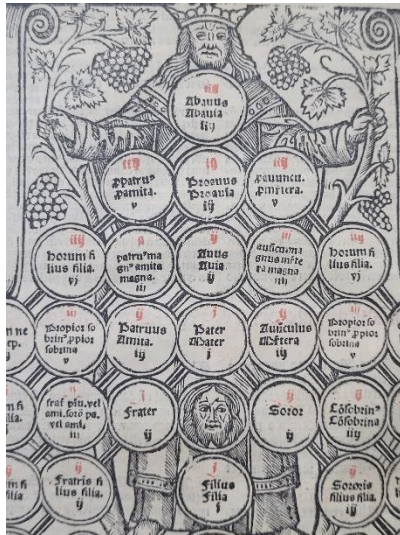 iiij
Abauus
Abauia
iiij
iiij
ꝓpatruꝰ
ꝓamita.
v
iij
Proauus
Proauia
iij
iiij
ꝓauuncu.
ꝓmꝑtera.
v
iiij
Horum fi
lius filia.
vj
patruꝰ ma
gnꝰ amita
magna.
iiij
ij
Auus
Auia
ij
iij
auūculꝰ ma
magna
iiij
iiij
Horum fi
lius filia.
vj
m ne
ep.
iij
Propior so
brinꝰ ꝓpior
sobrina
v
ij
Patruus
Amita.
iij
j
Pater
Mater
j
ij
Auūculus
Mꝑtera
iij
iij
Propior so
brinꝰ ꝓpior
sobrina
v
m fi
ilia
frat̄ pru. vel
ami. soro pa.
vel ami.
iiij
j
Frater
ij
j
Soror
ij
ij
Cōsobrinꝰ
Cōsobrina
iiij
m fi
ilia
ij
Fratris fi
lius filia.
iij
j
Filius
Filia
j
ij
Sororis
filius filia.
iij